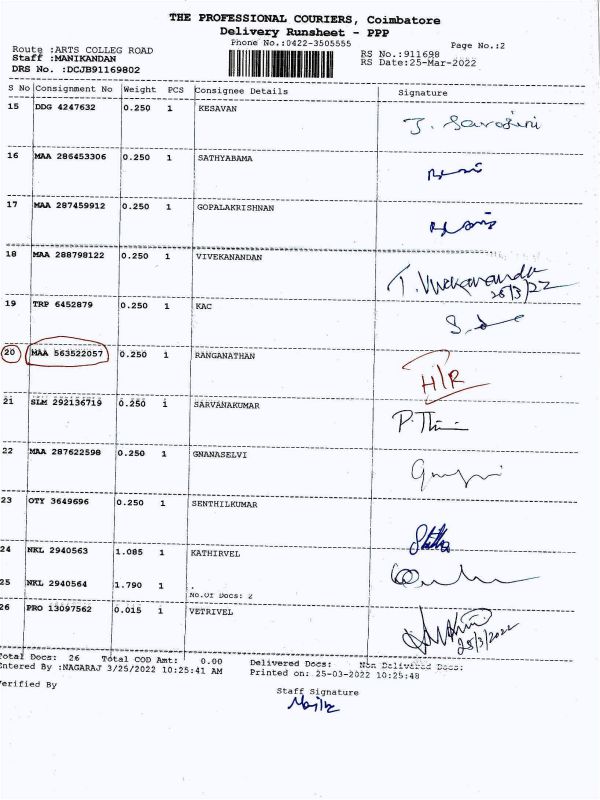 THE PROFESSIONAL COURIERS, Coimbatore
Delivery Runsheet - PPP
Phone No.:0422-3505555
Page No.:2
Route :ARTS COLLEG ROAD
RS No.:911698
Staff :MANIKANDAN
RS Date:25-Mar-2022
DRS No. :DCJB91169802
S No Consignment No Weight PCS Consignee Details Signature
15 DDG 4247632 0.250 1 KESAVAN
J. Sarojini
16 MAA 286453306 0.250 1 SATHYABAMA
17 MAA 287459912 0.250 1 GOPALAKRISHNAN
18 MAA 288798122 0.250 1 VIVEKANANDAN
T. Vivekananda
25/3/22
19 TRP 6452879 0.250 1 KAC
20 MAA 563522057 0.250 1 RANGANATHAN
H/R
21 SLM 292136719 0.250 1 SARVANAKUMAR
22 MAA 287622598 0.250 1 GNANASELVI
23 OTY 3649696 0.250 1 SENTHILKUMAR
24 NKL 2940563 1.085 1 KATHIRVEL
25 NKL 2940564 1.790 1 .
No.Of Docs: 2
26 PRO 13097562 0.015 1 VETRIVEL
25/3/2022
Total Docs: 26 Total COD Amt: 0.00 Delivered Docs: Non Delivered Docs:
Entered By :NAGARAJ 3/25/2022 10:25:41 AM Printed on: 25-03-2022 10:25:48
Verified By
Staff Signature